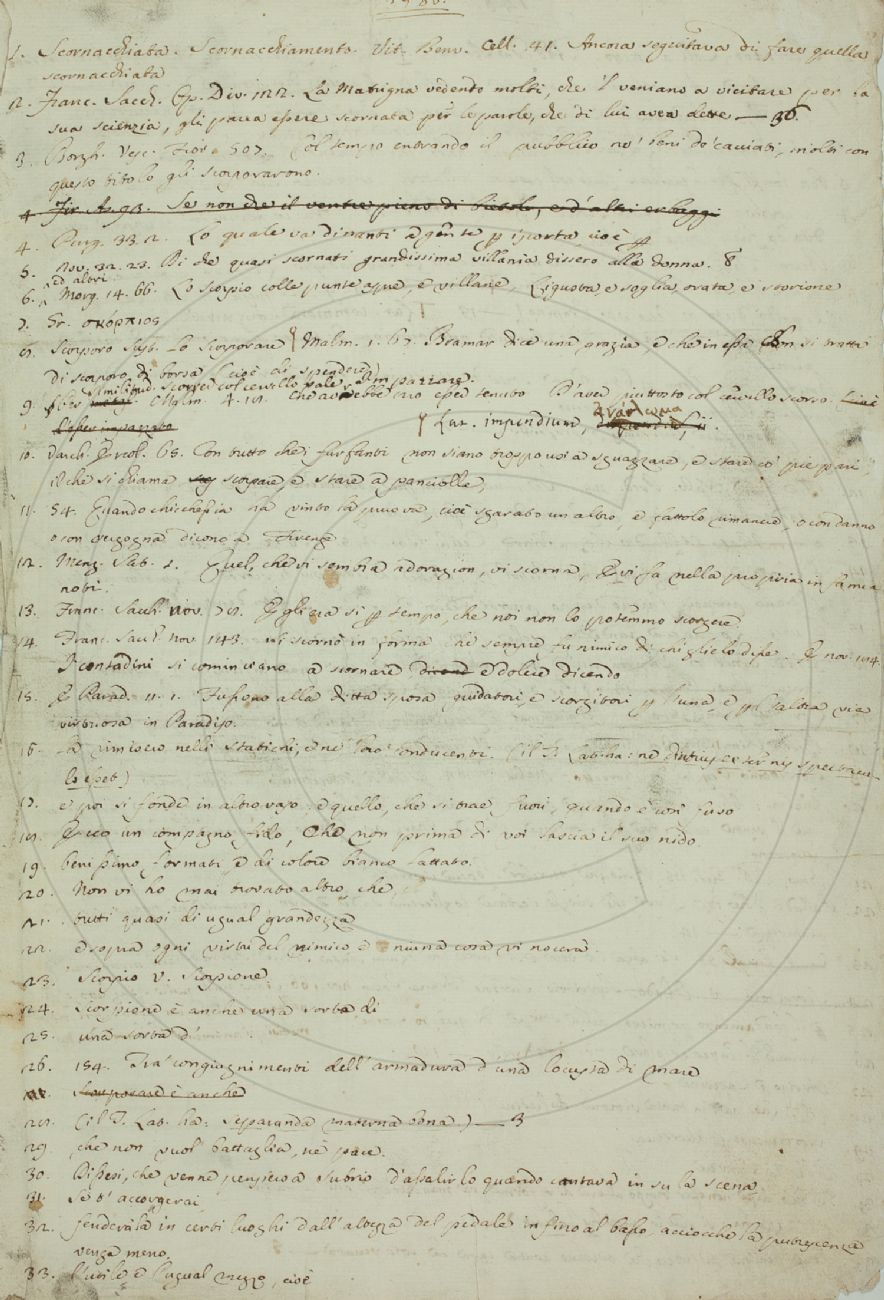 1. Scornacchiata. Scornacchiamento. Vit. Benv. Cell. 41. Ancora seguitava di fare quella
scornacchiata
2. Franc. Sacch. Op. Div. 122. La Matrigna vedendo molti, che 'l veniano a vicitare per la
sua scienzia, gli parea essere scornata per le parole, che di lui avea dette — 36
3. Borgh. Vesc. Fior. 507. Col tempo entrando il pubblico ne' beni de' cacciati, molti con
questo titolo gli scorporarono.
4. Fir. As. 93. Se non che il ventre pieno di bietole, e d'altri erbaggi
4. Purg. 33. 2. Lo quale va dinanti a gente p iscorta, cioè p
5. Nov. 32. 23. Di che quasi scornati grandissima villania dissero alla donna. 8
ed altri
6. Morg. 14. 66. Lo scorpio colle punte aspre, e villane, Liguota, e soglia, orata, e storione
7. Gr. σκόρπιος
8. Scorporo Sust. Lo Scorporare Malm. 1. 67. Bramar dice una grazia, e che in essa non si tratti
di scorporo di borsa (cioè di spendere)
9. Malm. 4. che avrebbe ciò esser tenuto D'aver piuttosto col cervello scorso.
Lat. impendium, ἀνάλωμα
10. Varch. Ercol. 65. Con tutto che i furfanti non siano troppo usi a sguazzare, e stare co' piè pari
il che si chiama scorpare, e stare a panciolle,
11. 54. Quando chicchessia ha vinto la pruova, cioè sgarato un altro, e fattolo rimanere, o con danno
o con vergogna dicono a Firenze
12. Menz. Sat. 1. Quel, che vi sembra adorazion, vi scorna, E vi fa nella propria infamia
noti.
13. Franc. Sacch. nov. Egli era sì p tempo, che noi non lo potemmo scorgere
14. Franc. Sacch. nov. 143. scornò in forma che sempre fu nimico di chi gliele disse. E nov.
I contadini si cominciano a scornare e dolere dicendo
15. E Parad. 11. 1. Fussono alla detta sposa guidatori, e scorgitori p l'una, e p l'altra via
virtuosa in Paradiso.
16. La rimisero nelli Statichi, e ne' loro conducenti. (il T. Lat. ha: ne diutius externis spectacu-
lo esset)
17. e poi si fonde in altro vaso, e quello, che si trae fuori, quando è così fuso
18. Ecco un compagno fido, Che non prima di voi lascia il suo nido.
19. benissimo formati, e di colore bianco lattato.
20. Non vi ho mai trovato altro, che
21. tutti quasi di ugual grandezza
22. e sopra ogni virtù del nimico e niuna cosa vi nocerà
23. Scorpio V. Scorpione
24. Scorpione è anche una sorta di
25. una sorta d'
26. 154. Tra' congiugnimenti dell'armadura d'una locusta di mare
Scorporare è anche
28. (il T. Lat. ha: Separanda materna bona.) — 3
29. che non vuol battaglia, nè pace.
30. Dissesi, che venne pensiero a subrio d'assalirlo quando cantava in su la scena
31. Se t' accorgerai
32. fenderala in certi luoghi dall'altezza del pedale infino al basso, acciocchè la putrescenza
venga meno,
33. l'utile è l'ugual mezzo, cioè